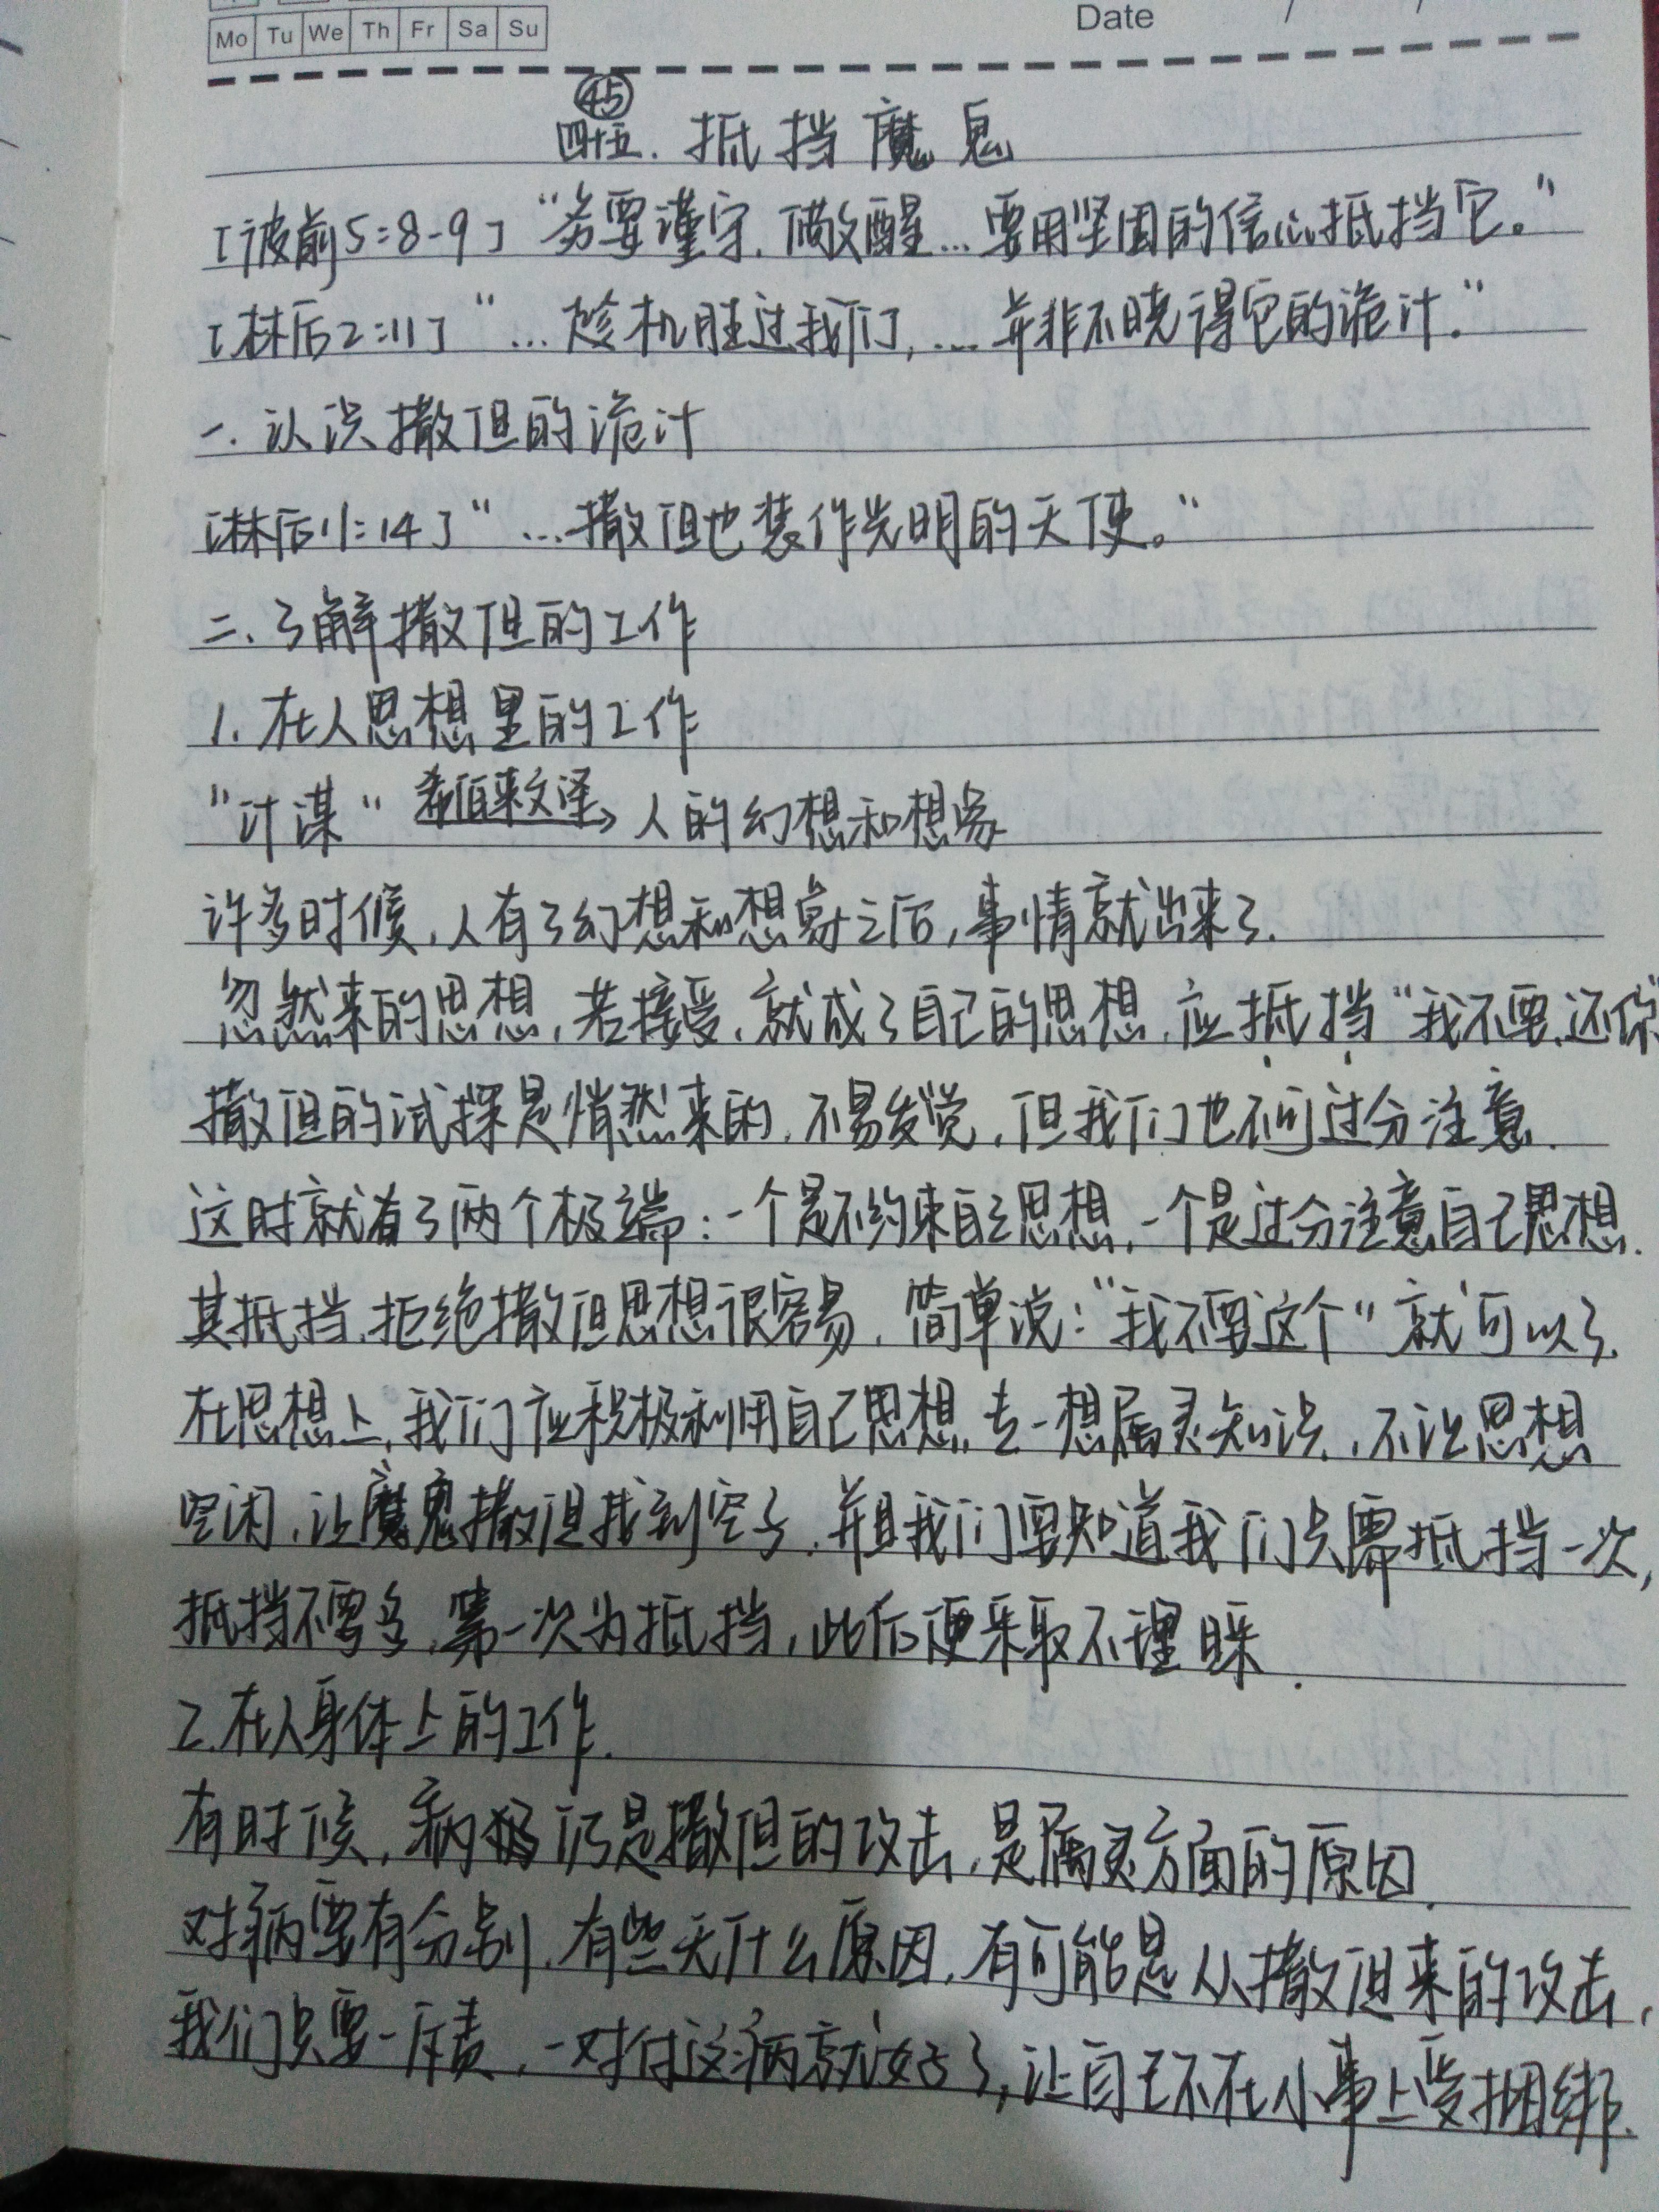 Mo Tu We Th Fr Sa Su
Date / /
㊺
四十五. 抵挡魔鬼
[彼前5:8-9] “务要谨守.儆醒…要用坚固的信心抵挡它。”
[林后2:11] “…趁机胜过我们,…并非不晓得它的诡计.”
一.认识撒但的诡计
[林后11:14] “…撒但也装作光明的天使。”
二、了解撒但的工作
1.在人思想里的工作
“计谋” 希伯来文译→ 人的幻想和想象
许多时候,人有了幻想和想象之后,事情就出来了.
忽然来的思想,若接受,就成了自己的思想,应抵挡“我不要,还你”
撒但的试探是悄然来的,不易发觉,但我们也不可过分注意.
这时就有了两个极端:一个是不约束自己思想,一个是过分注意自己思想.
其抵挡.拒绝撒但思想很容易,简单说:“我不要这个”就可以了.
在思想上,我们应积极利用自己思想,专一想属灵知识,不让思想
空闲,让魔鬼撒但找到空子,并且我们要知道我们只需抵挡一次,
抵挡不要多,第一次为抵挡,此后便采取不理睬.
2.在人身体上的工作.
有时候,病仍是撒但的攻击,是属灵方面的原因.
对病要有分别,有些无什么原因,有可能是从撒但来的攻击,
我们只要一斥责,一对付这病就好了,让自己不在小事上受捆绑.